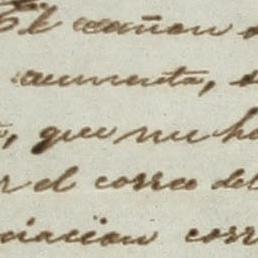 El cañon
aumenta,
que me ha
el correo del
ciacion corr